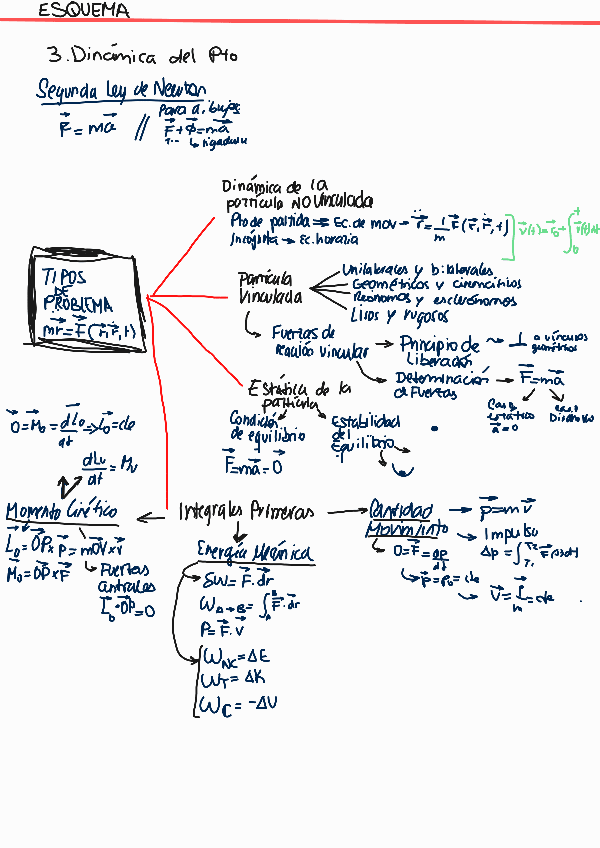 ESQUEMA
3. Dinámica del Pto
Segunda Ley de Newton
F⃗ = ma⃗ // Para d. bujos
F⃗ + Φ⃗ = ma⃗
↳ ligadura
Dinámica de la
partícula NO Vinculada
Pto de partida ⇒ Ec. de mov → r̈⃗ = 1/m F⃗(r⃗, ṙ⃗, t)
Incógnita → Ec. horaria
TIPOS
DE
PROBLEMA
mr̈⃗ = F⃗(r⃗, ṙ⃗, t)
Partícula
Vinculada
Unilaterales y bilaterales
Geométricos y cinemáticos
Reonomos y esclerónomos
Lisos y rugosos
Fuerzas de
reacción vincular
Principio de
Liberación
⊥ a vínculos
geométricos
Determinación
de Fuerzas
F⃗ = ma⃗
Caso
estático
a⃗ = 0
Caso
Dinámico
Estática de la
partícula
Condición
de equilibrio
F⃗ = ma⃗ = 0⃗
Estabilidad
del
Equilibrio
0⃗ = M⃗₀ = dL⃗₀/dt ⇒ L⃗₀ = cte
dLᵤ/dt = Mᵤ
Momento Cinético
L⃗₀ = OP⃗ × p⃗ = mOP⃗ × v⃗
M⃗₀ = OP⃗ × F⃗
↳ Fuerzas
centrales
L⃗₀ · OP⃗ = 0
Integrales Primeras
Energía Mecánica
δW = F⃗ · dr⃗
W A→B = ∫ₐᴮ F⃗ · dr⃗
P = F⃗ · v⃗
W NC = ΔE
W T = ΔK
W C = -ΔU
Cantidad
Movimiento
p⃗ = m v⃗
Impulso
Δp = ∫ F⃗(t)dt
0 = F⃗ = dp⃗/dt
p⃗ = p₀ = cte
v⃗ = p⃗/m = cte